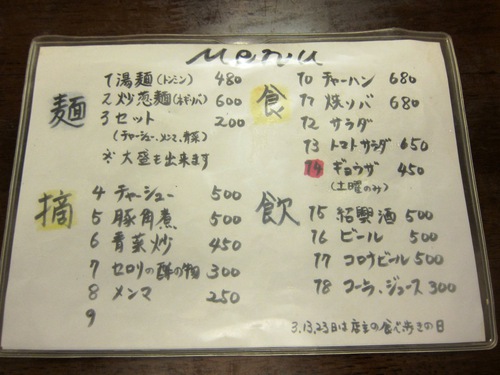 Menu
麺
1 湯麺(トンミン) 480
2 炒葱麺(ネギソバ) 600
3 セット 200
(チャーシュー、メンマ、青菜)
※ 大盛も出来ます
摘
4 チャーシュー 500
5 豚角煮 500
6 青菜炒 450
7 セロリの酢の物 300
8 メンマ 250
9
食
10 チャーハン 680
11 焼ソバ 680
12 サラダ
13 トマトサラダ 650
14 ギョウザ 450
(土曜のみ)
飲
15 紹興酒 500
16 ビール 500
17 コロウビール 500
18 コーラ、ジュース 300
3.13.23日は店主の食べ歩きの日